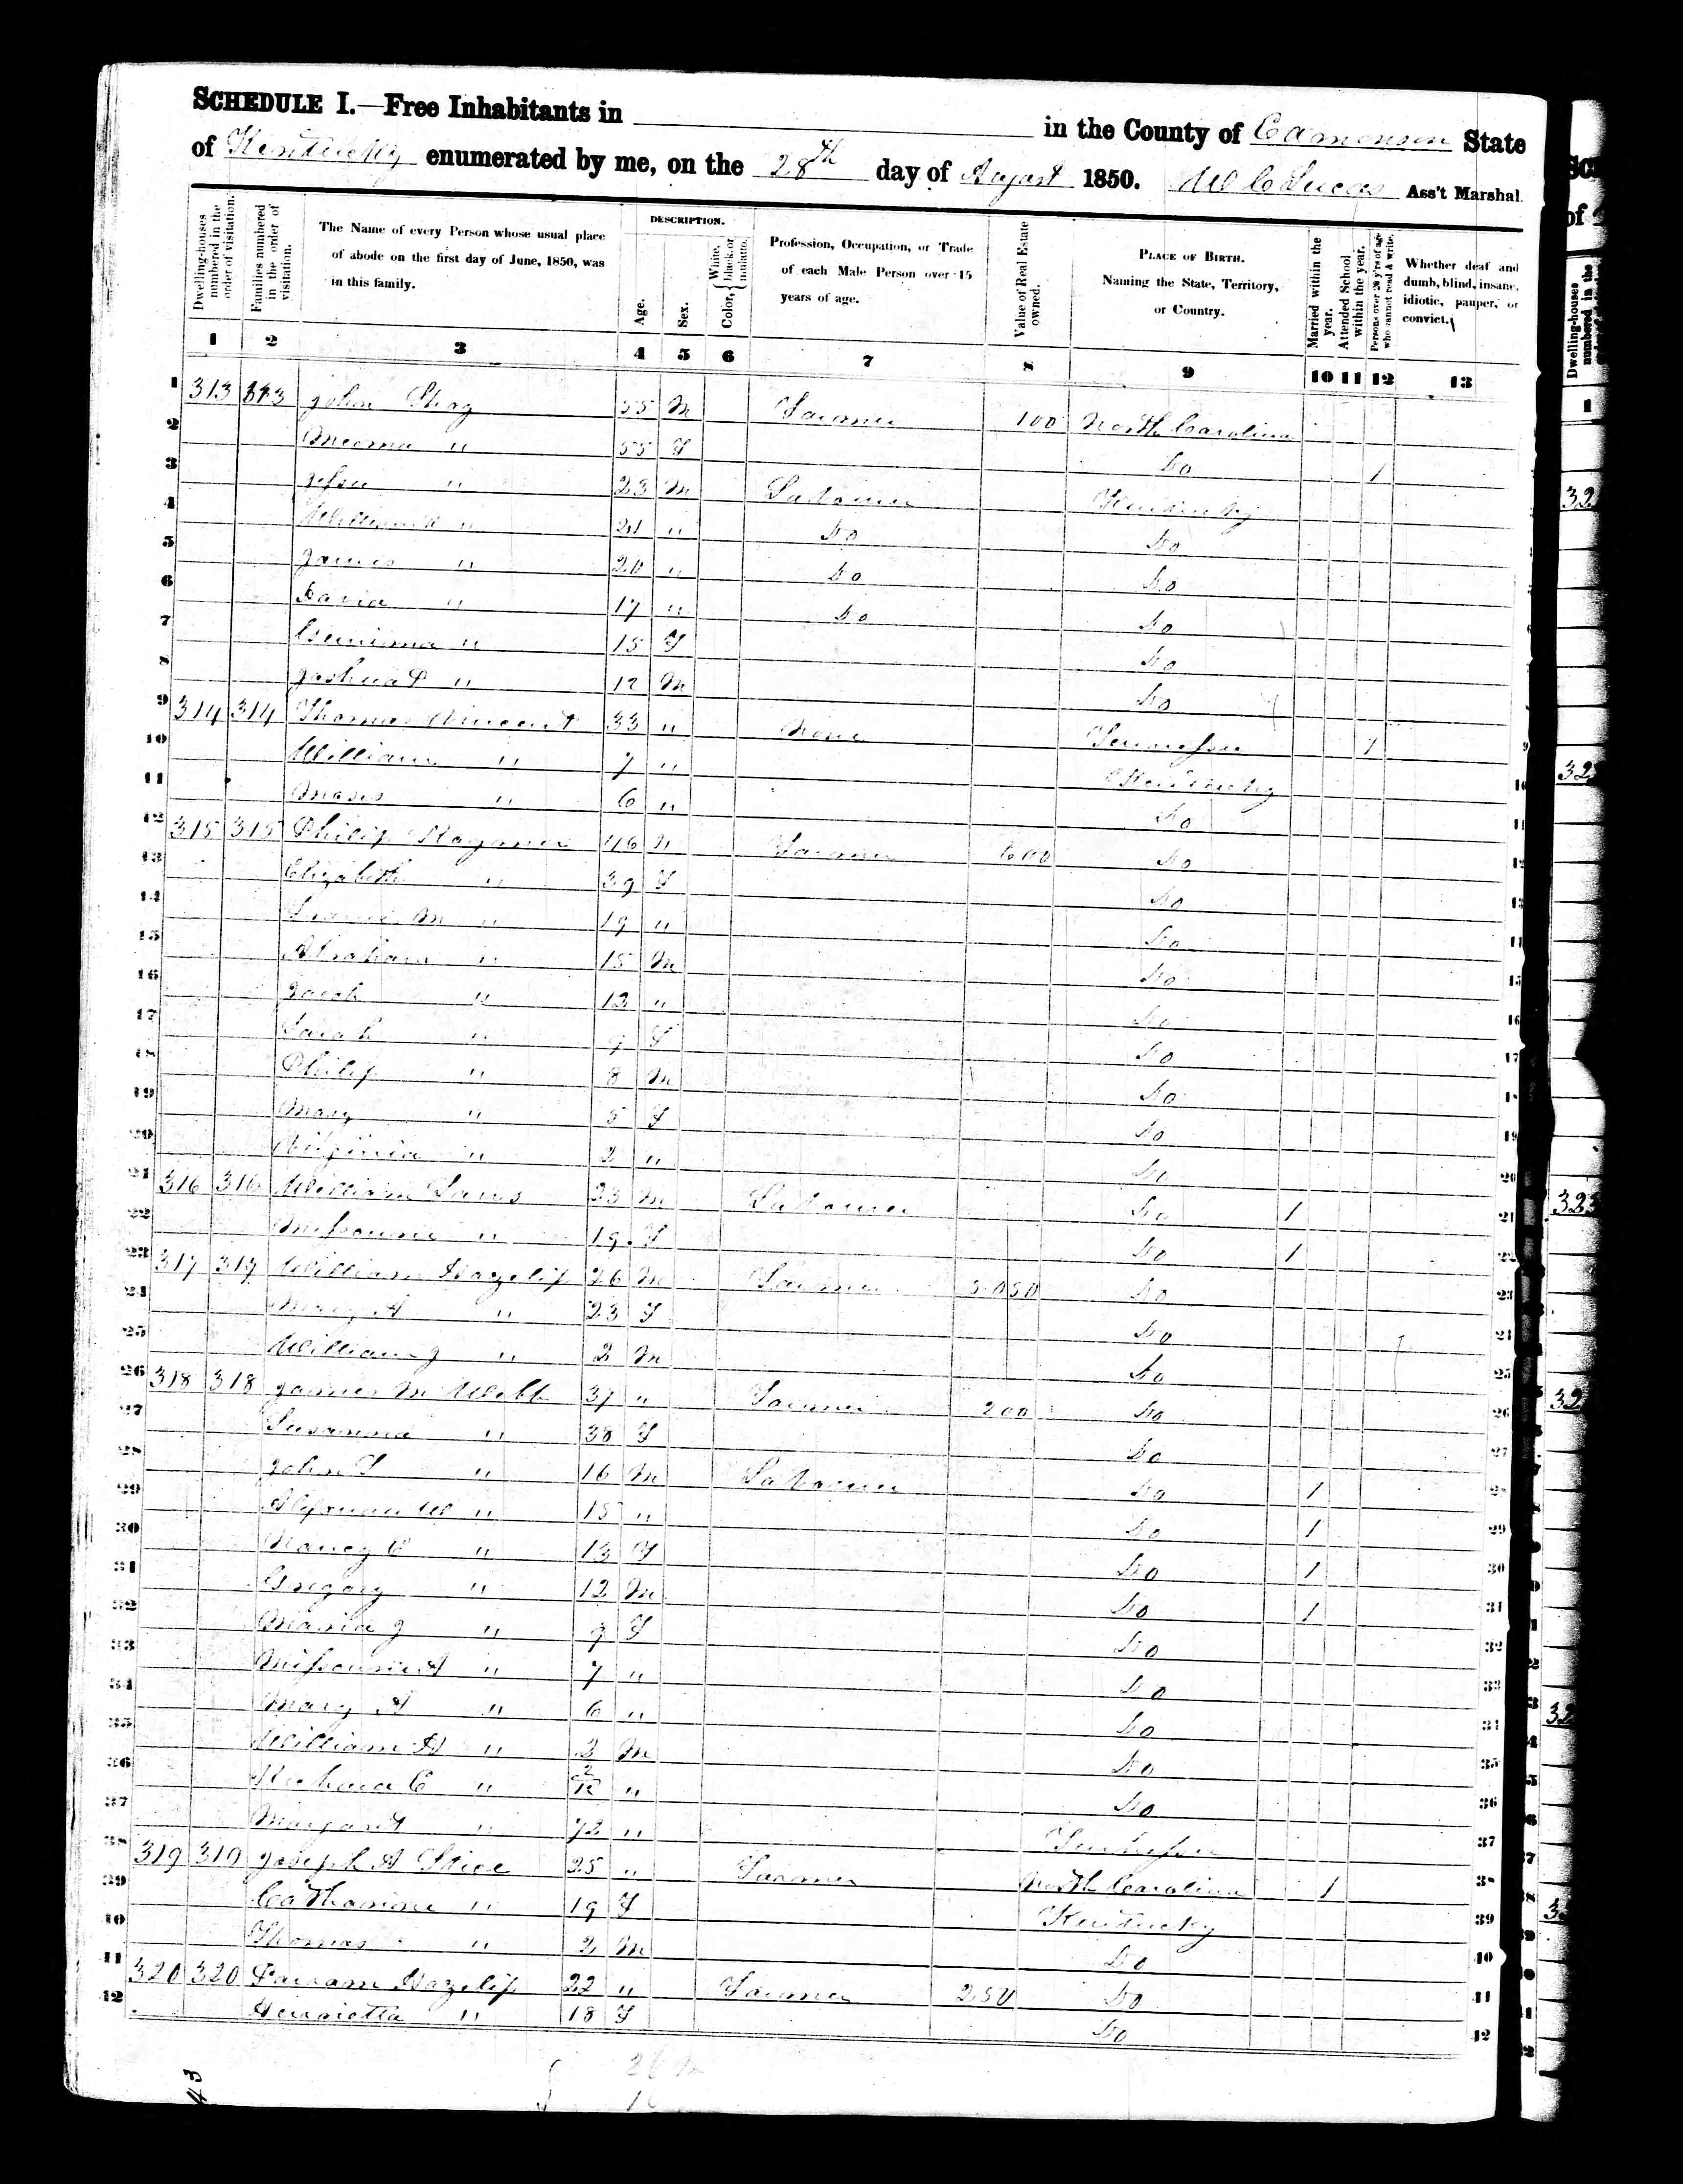 SCHEDULE I.—Free Inhabitants in in the County of Edmonson State
of Kentucky enumerated by me, on the 28th day of August 1850. Ass't Marshal.
Dwelling-houses numbered in the order of visitation.
Families numbered in the order of visitation.
The Name of every Person whose usual place of abode on the first day of June, 1850, was in this family.
DESCRIPTION.
Age.
Sex.
Color, { White, black, or mulatto.
Profession, Occupation, or Trade of each Male Person over 15 years of age.
Value of Real Estate owned.
PLACE OF BIRTH. Naming the State, Territory, or Country.
Married within the year.
Attended School within the year.
Persons over 20 y'rs of age who cannot read & write.
Whether deaf and dumb, blind, insane, idiotic, pauper, or convict.
1 2 3 4 5 6 7 8 9 10 11 12 13
1 313 313 John 55 M Farmer 100 North Carolina
2 " 55 F Do 1
3 Jesse " 23 M Labourer Kentucky
4 William " 21 " Do Do
5 James " 20 " Do Do
6 David " 17 " Do Do
7 " 15 F Do
8 Joshua P " 12 M Do
9 314 314 Thomas Vincent 33 " None Tennessee 1
10 William " 7 " Kentucky
11 " 6 " Do
12 315 315 Philip 46 " Farmer 600 Do
13 Elizabeth " 39 F Do
14 M " 19 " Do
15 Abraham " 15 M Do
16 Jacob " 12 " Do
17 Sarah " 9 F Do
18 Philip " 8 M Do
19 Mary " 5 F Do
20 Virginia " 2 " Do
21 316 316 William 23 M Labourer Do 1
22 Missourie " 19 F Do 1
23 317 317 William Hazelip 26 M Farmer Do
24 Mary A " 23 F Do
25 William J " 2 M Do
26 318 318 James M Webb 37 " Farmer 200 Do
27 Susanna " 38 F Do
28 John " 16 M Labourer Do 1
29 W " 15 " Do 1
30 Nancy C " 13 F Do 1
31 Gregory " 12 M Do 1
32 Maria J " 9 F Do
33 Missourie A " 7 " Do
34 Mary A " 6 " Do
35 William H " 3 M Do
36 Richard C " 2/12 " Do
37 Margaret " 72 " Tennessee
38 319 319 Joseph A 25 " Farmer North Carolina 1
39 Catharine " 19 F Kentucky
40 Thomas " 2 M Do
41 320 320 Hazelip 22 " Farmer 250 Do
42 Henrietta " 18 F Do
43